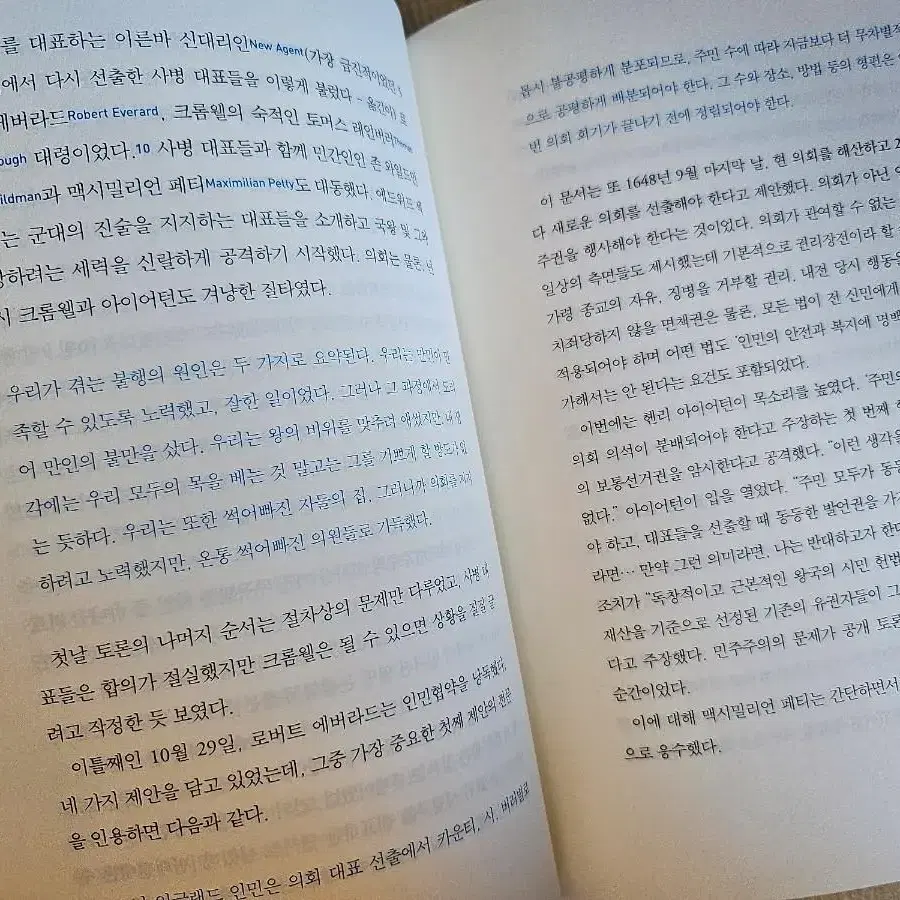 를 대표하는 이른바 신대리인New Agent(가장 급진적이었던 5
에서 다시 선출한 사병 대표들을 이렇게 불렀다 - 옮긴이)
에버라드Robert Everard, 크롬웰의 숙적인 토머스 레인버러
ough 대령이었다.10 사병 대표들과 함께 민간인인 존 와일드먼
ildman과 맥시밀리언 페티Maximilian Petty도 대동했다. 에드워드
는 군대의 진술을 지지하는 대표들을 소개하고 국왕 및 그와
하려는 세력을 신랄하게 공격하기 시작했다. 의회는 물론,
시 크롬웰과 아이어턴도 겨냥한 질타였다.
우리가 겪는 불행의 원인은 두 가지로 요약된다. 우리는 만인이 만
족할 수 있도록 노력했고, 잘한 일이었다. 그러나 그 과정에서 도리
어 만인의 불만을 샀다. 우리는 왕의 비위를 맞추려 애썼지만, 내 생
각에는 우리 모두의 목을 베는 것 말고는 그를 기쁘게 할 방도가 없
는 듯하다. 우리는 또한 썩어빠진 자들의 집, 그러니까 의회를 지지
하려고 노력했지만, 온통 썩어빠진 의원들로 가득했다.
첫날 토론의 나머지 순서는 절차상의 문제만 다루었고, 사병 대
표들은 합의가 절실했지만 크롬웰은 될 수 있으면 상황을 질질 끌
려고 작정한 듯 보였다.
이틀째인 10월 29일, 로버트 에버라드는 인민협약을 낭독했다.
네 가지 제안을 담고 있었는데, 그중 가장 중요한 첫째 제안의 전문
을 인용하면 다음과 같다.
잉글랜드 인민은 의회 대표 선출에서 카운티, 시, 버러별로
몹시 불공평하게 분포되므로, 주민 수에 따라 지금보다 더 무차별적
으로 공평하게 배분되어야 한다. 그 수와 장소, 방법 등의 형편은
번 의회 회기가 끝나기 전에 정립되어야 한다.
이 문서는 또 1648년 9월 마지막 날, 현 의회를 해산하고 2
다 새로운 의회를 선출해야 한다고 제안했다. 의회가 아닌
주권을 행사해야 한다는 것이었다. 의회가 관여할 수 없는
일상의 측면들도 제시했는데 기본적으로 권리장전이라 할
가령 종교의 자유, 징병을 거부할 권리, 내전 당시 행동을
치죄당하지 않을 면책권은 물론, 모든 법이 전 신민에게
적용되어야 하며 어떤 법도 '인민의 안전과 복지에 명백
가해서는 안 된다'는 요건도 포함되었다.
이번에는 헨리 아이어턴이 목소리를 높였다. '주민의
의회 의석이 분배되어야 한다고 주장하는 첫 번째
의 보통선거권을 암시한다고 공격했다. "이런 생각을
없다." 아이어턴이 입을 열었다. "주민 모두가 동등
야 하고, 대표들을 선출할 때 동등한 발언권을 가
라면… 만약 그런 의미라면, 나는 반대하고자 한다
조치가 "독창적이고 근본적인 왕국의 시민 헌법
재산을 기준으로 선정된 기존의 유권자들이 그
다고 주장했다. 민주주의의 문제가 공개 토론
순간이었다.
이에 대해 맥시밀리언 페티는 간단하면서
으로 응수했다.